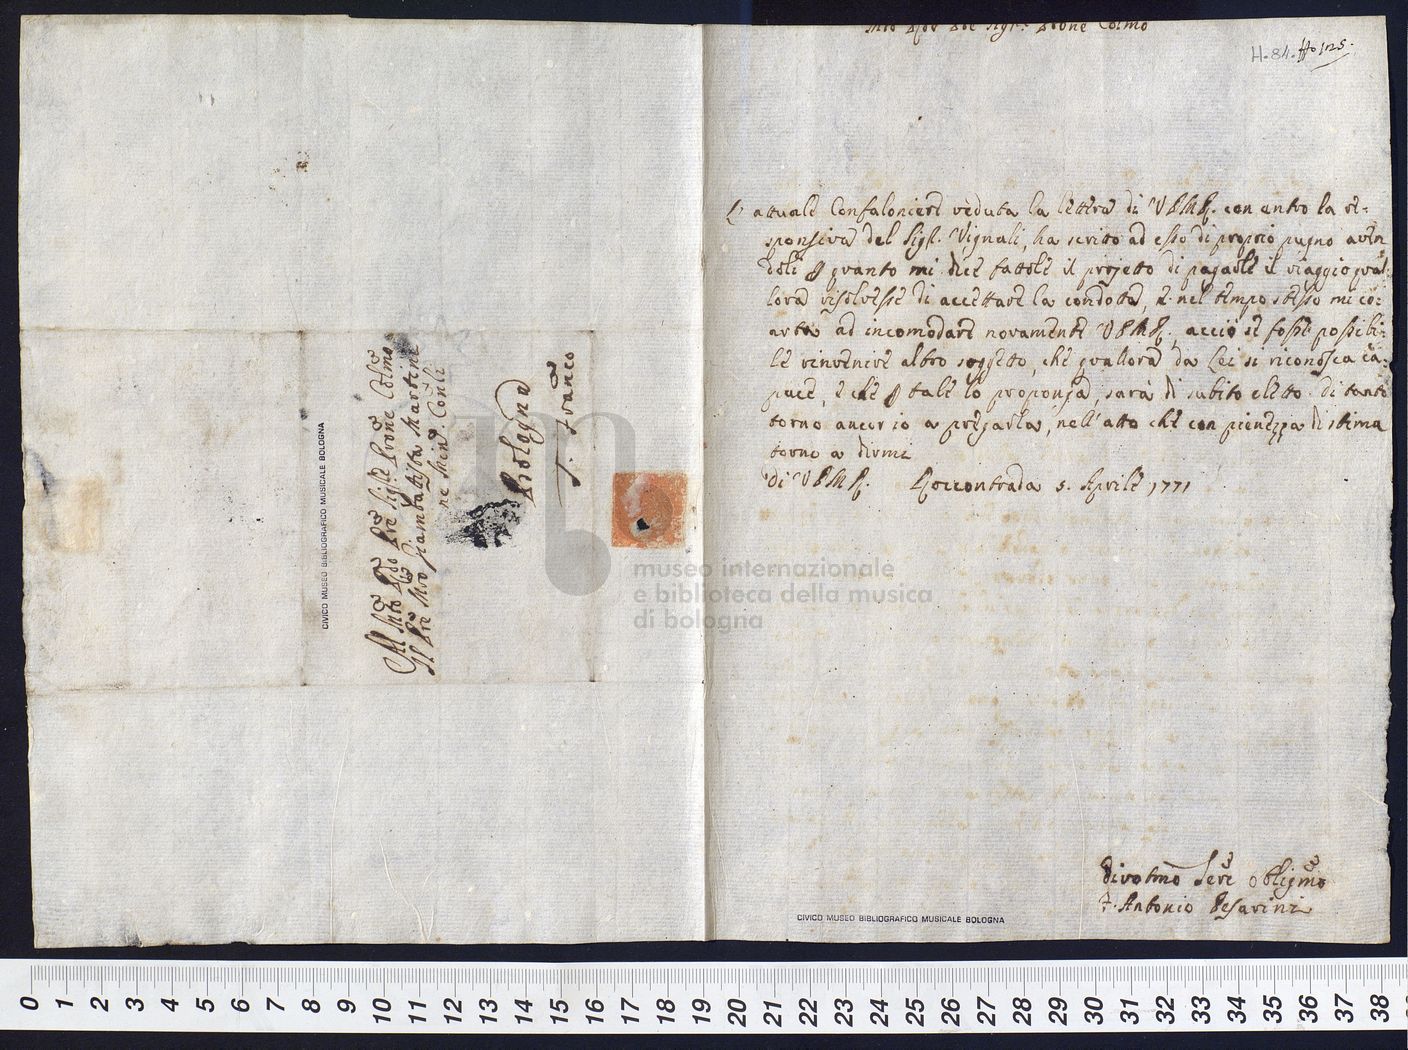 Mto Rdo Pre Sigre Prone Colmo
H. 84. Ho 125.
L'attuale Confaloniere veduta la lettera di V.P.M.R. con entro la re-
sponsiva del Sigr. Vignali, ha scritto ad esso di proprio pugno aven
doli p quanto mi dice fattole il projetto di pagarle il viaggio qual
lora risolvesse di accettare la condotta, e nel tempo stesso mi co-
arta ad incomodare novamente V.P.M.R., acciò se fosse possibi-
le rinvenire altro soggetto, che quallora da Lei si riconosca ca-
pace, e che p tale lo proponga, sarà di subito eletto. di tanto
torno ancor io a pregarla, nell'atto che con pienezza di stima
torno a dirmi
di V.P.M.R. Roccontrada 5. Aprile 1771
Divotmo Serre Obligmo
F. Antonio Pesarini
Al Mto Rdo Pre Sigre Prone Colmo
Il Pre Mro Giambattista Martini
re Min. Conli
Bologna
S. Franco
CIVICO MUSEO BIBLIOGRAFICO MUSICALE BOLOGNA
CIVICO MUSEO BIBLIOGRAFICO MUSICALE BOLOGNA
museo internazionale
e biblioteca della musica
di bologna
0 1 2 3 4 5 6 7 8 9 10 11 12 13 14 15 16 17 18 19 20 21 22 23 24 25 26 27 28 29 30 31 32 33 34 35 36 37 38